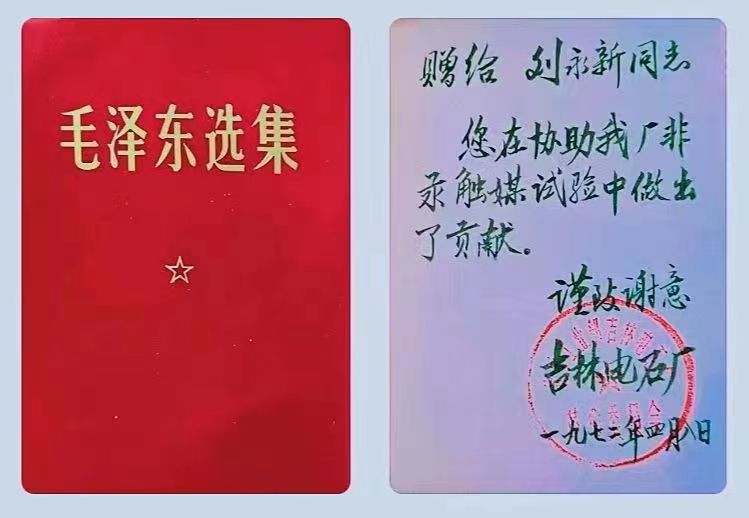 毛泽东选集
赠给 刘永新同志
您在协助我厂非
录触媒试验中做出
了贡献。
谨致谢意
吉林电石厂
一九七二年四月八日